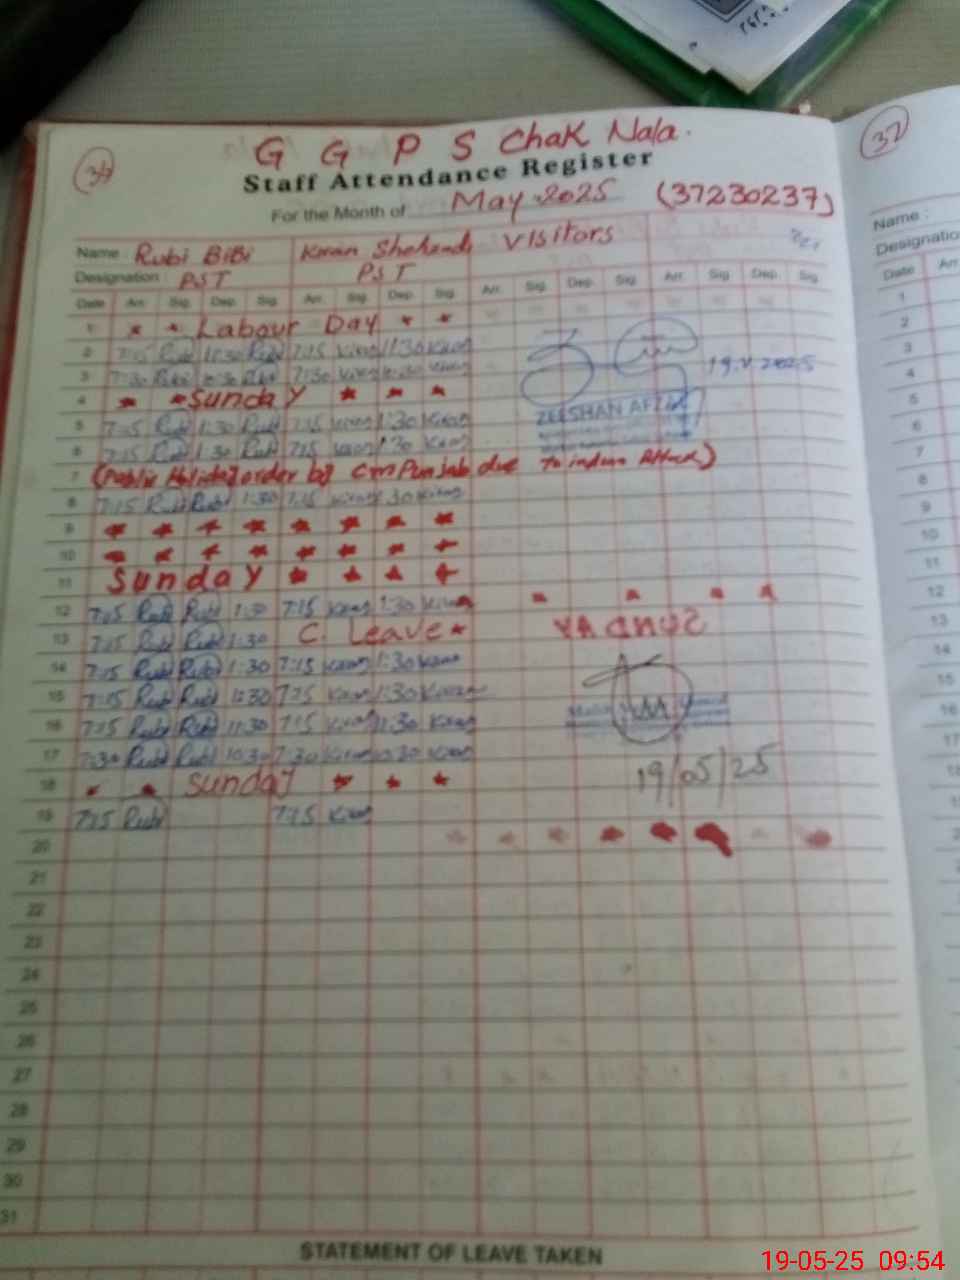 34
G G P S Chak Nala.
Staff Attendance Register
For the Month of May-2025 (37230237)
Name : Rubi BiBi Kiran Shehzadi Visitors
Designation : PST PST
Date Arr. Sig. Dep. Sig. Arr. Sig. Dep. Sig. Arr. Sig. Dep. Sig. Arr. Sig. Dep. Sig.
1 Labour Day
2 7:15 Rubi 11:30 Rubi 7:15 Kiran 11:30 Kiran
3 7:30 Rubi 10:30 Rubi 7:30 Kiran 10:30 Kiran
19.V.2025
4 Sunday
ZEESHAN AFZAL
5 7:15 Rubi 1:30 Rubi 7:15 Kiran 1:30 Kiran
6 7:15 Rubi 1:30 Rubi 7:15 Kiran 1:30 Kiran
7 (Public Holiday order by Cm Punjab due to indian Attack)
8 7:15 Rubi Rubi 1:30 7:15 Kiran 1:30 Kiran
9
10
11 Sunday
12 7:15 Rubi Rubi 1:30 7:15 Kiran 1:30 Kiran
13 7:15 Rubi Rubi 1:30 C. Leave
SUNDAY
14 7:15 Rubi Rubi 1:30 7:15 Kiran 1:30 Kiran
15 7:15 Rubi Rubi 1:30 7:15 Kiran 1:30 Kiran
16 7:15 Rubi Rubi 11:30 7:15 Kiran 11:30 Kiran
17 7:30 Rubi Rubi 10:30 7:30 Kiran 10:30 Kiran
18 Sunday
19/05/25
19 7:15 Rubi 7:15 Kiran
20
21
22
23
24
25
26
27
28
29
30
31
STATEMENT OF LEAVE TAKEN
37
Name :
Designatio
Date Arr
1
2
3
4
5
6
7
8
9
10
11
12
13
14
15
16
17
19-05-25 09:54